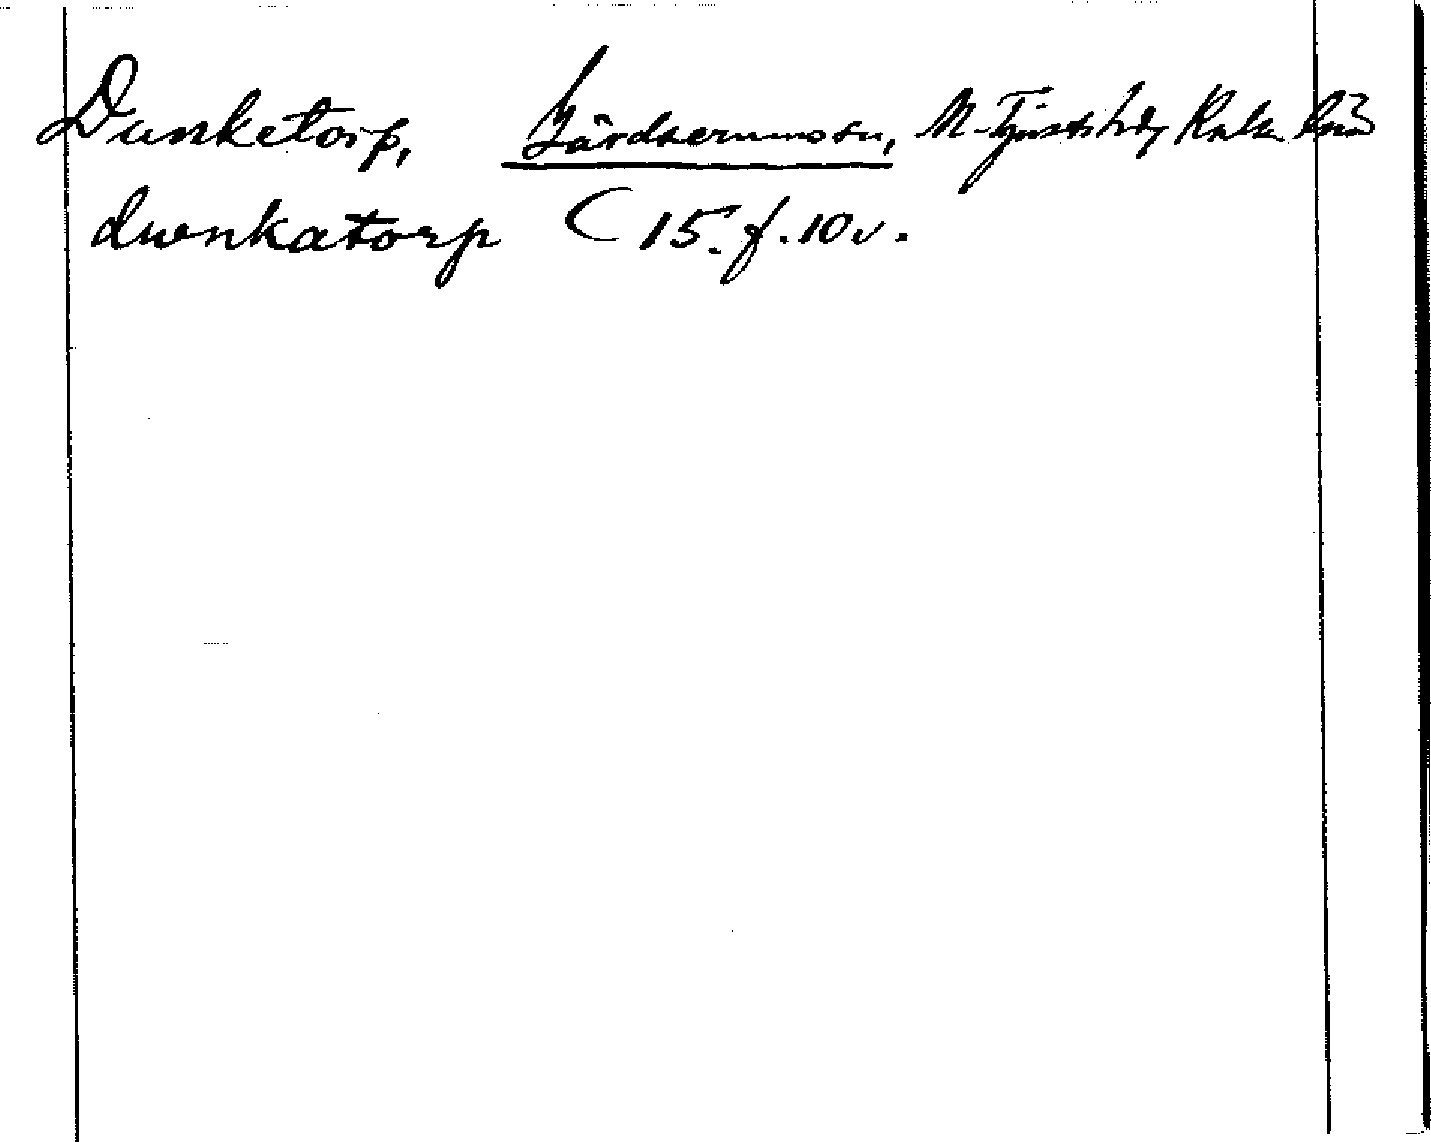 Dunketorp, Gärdserums sn, N. Tjusts hd, Kalm. län
dwnkatorp C 15. f. 10 v.